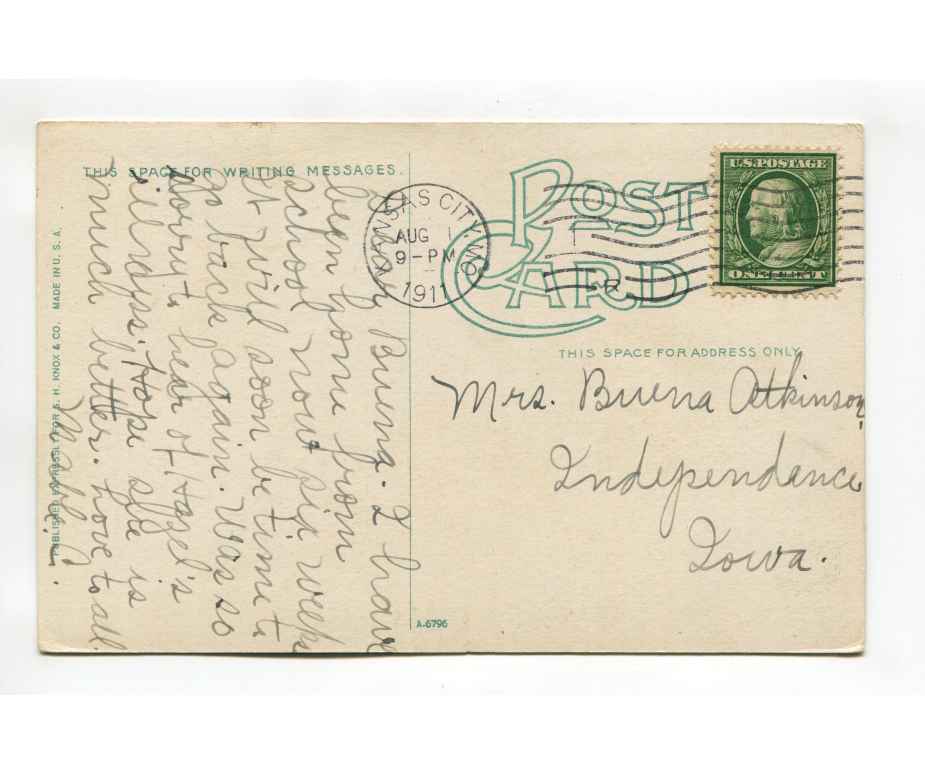 THIS SPACE FOR WRITING MESSAGES.
POST
CARD
KANSAS CITY, MO.
AUG 1
9-PM
1911
U.S. POSTAGE
ONE CENT
THIS SPACE FOR ADDRESS ONLY.
Mrs. Buena Atkinson
Independance
Iowa.
Dear Buena. I have
been home from
school now six weeks
et will soon be time to
go back again. Was so
sorry to hear of Hazel's
sickness. Hope she is
much better. Love to all.
PUBLISHED EXPRESSLY FOR S. H. KNOX & CO. MADE IN U. S. A.
A-6796